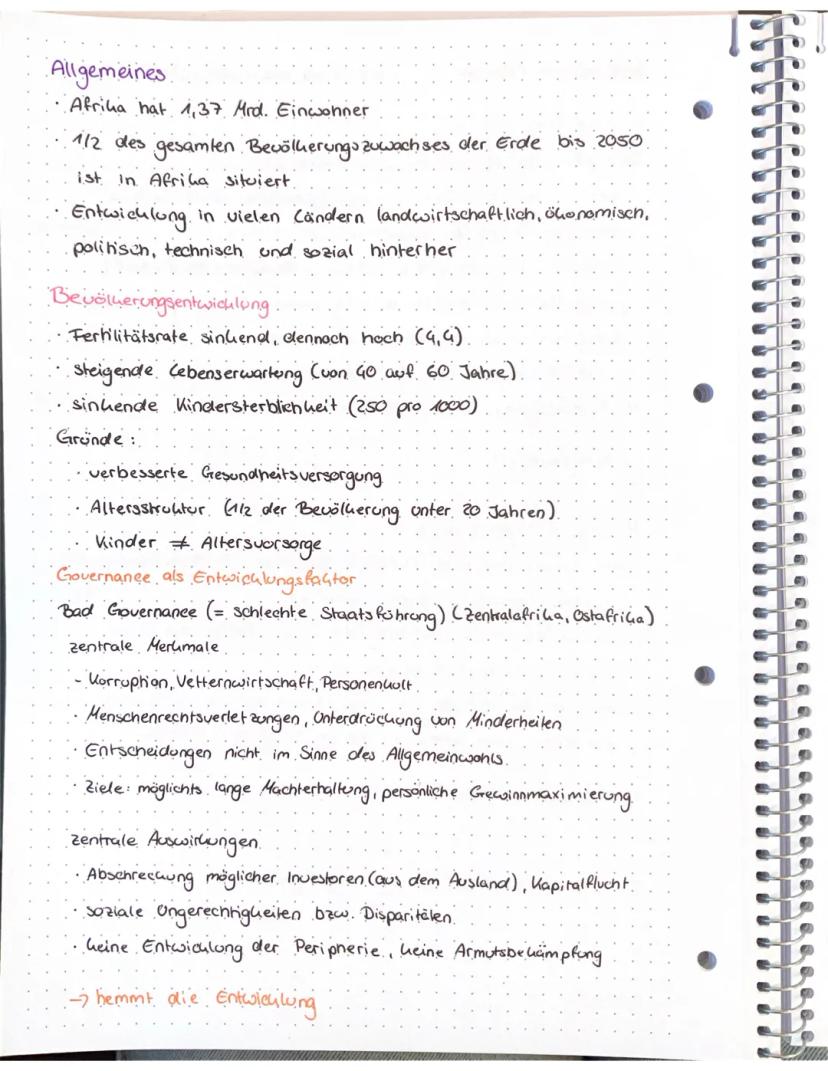 Allgemeines
· Afrika hat 1,37 Mrd. Einwohner
· 1/2 des gesamten Bevölkerungszuwachses der Erde bis 2050
ist in Afrika situiert
· Entwicklung in vielen Ländern landwirtschaftlich, ökonomisch,
politisch, technisch und sozial hinterher
Bevölkerungsentwicklung
· Fertilitätsrate sinkend, dennoch hoch (4,4)
· steigende Lebenserwartung (von 40 auf 60 Jahre)
· sinkende Kindersterblichkeit (250 pro 1000)
Gründe:
· verbesserte Gesundheitsversorgung
· Altersstruktur (1/2 der Bevölkerung unter 20 Jahren)
· Kinder ≠ Altersvorsorge
Governance als Entwicklungsfaktor
Bad Governance (= schlechte Staatsführung) (Zentralafrika, Ostafrika)
zentrale Merkmale
- Korruption, Vetternwirtschaft, Personenkult
· Menschenrechtsverletzungen, Unterdrückung von Minderheiten
· Entscheidungen nicht im Sinne des Allgemeinwohls
· Ziele: möglichts lange Machterhaltung, persönliche Gewinnmaximierung
zentrale Auswirkungen
· Abschreckung möglicher Investoren (aus dem Ausland), Kapitalflucht
· soziale Ungerechtigkeiten bzw. Disparitäten
· keine Entwicklung der Peripherie, keine Armutsbekämpfung
→ hemmt die Entwicklung